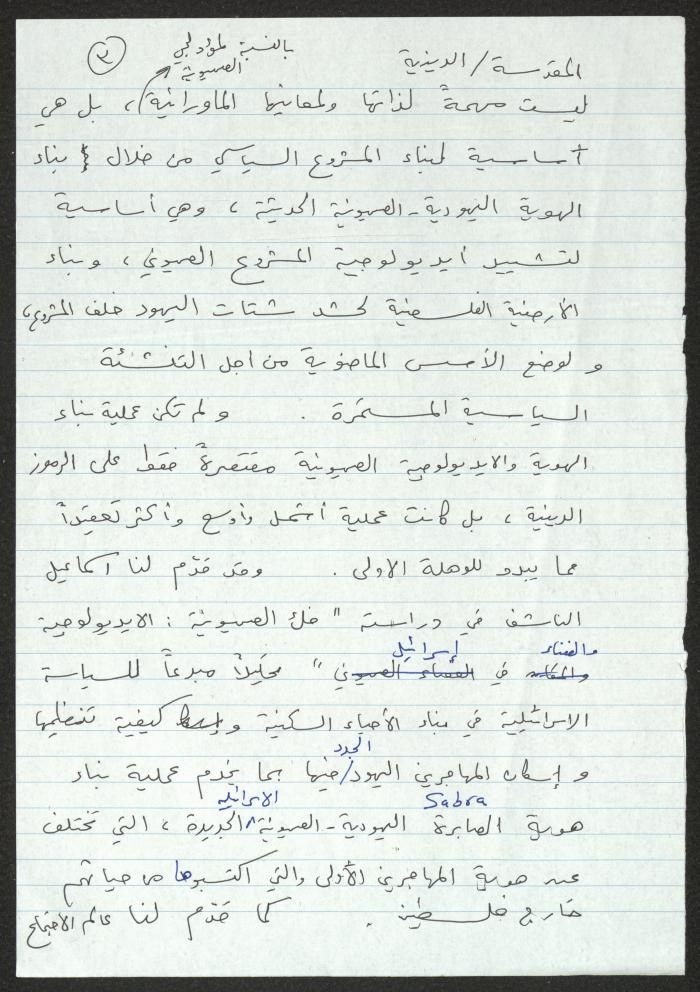 ٣
بالنسبة لمؤدلجي
الصهيونية
المقدسة/الدينية
ليست مهمةً لذاتها ولمعانيها الماورائية)، بل هي
أساسية لبناء المشروع السياسي من خلال بناء
الهوية اليهودية-الصهيونية الحديثة، وهي أساسية
لتشييد أيديولوجية المشروع الصهيوني، وبناء
الأرضية الفلسطينية لحشد شتات اليهود خلف المشروع،
ولوضع الأسس الماضوية من أجل التنشئة
السياسية المستمرة. ولم تكن عملية بناء
الهوية والايديولوجية الصهيونية مقتصرةً فقط على الرموز
الدينية، بل كانت عملية أشمل وأوسع وأكثر تعقيداً
مما يبدو للوهلة الاولى. وقد قدّم لنا اسماعيل
الناشف في دراسته "فك الصهيونية: الايديولوجية
والفضاء إسرائيل
والمكان في الفضاء الصهيوني" تحليلاً مبدعاً للسياسة
الاسرائيلية في بناء الأحياء السكنية وكيفية تنظيمها
الجدد
وإسكان المهاجرين اليهود/فيها بما يخدم عملية بناء
Sabra الاسرائيلية
هوية الصابرة اليهودية-الصهيونية^الجديدة، التي تختلف
عن هوية المهاجرين الأولى والتي اكتسبوها من حياتهم
خارج فلسطين. كما قدّم لنا عالم الاجتماع